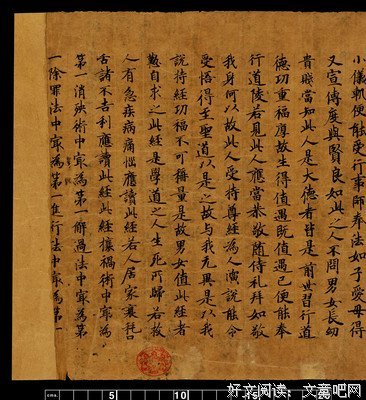 小儀軌便能受行事師奉法如子愛母得
又宣傳度與賢良如此之人不問男女長幼
貴賤當知此人是大德者皆是前世習行道
德功重福厚故生得值遇既值遇已便能奉
行道陵若見此人應當恭敬隨侍礼拜如敬
我身何以故此人受持尊經為人演說能令
受悟得至聖道以是之故与我无異是以我
說持經功福不可稱量是故男女值此經者
懃自求之此經是學道之人生死所歸若
人有急疾病痛惱應讀此經若人居家衰耗
舌諸不吉利應讀此經禳禍術中㝡為
第一消殃術中㝡為第一解過法中㝡為第
一除罪法中㝡為第一進行法中㝡為第一
cms. 5 10 15
好文阅读：文章吧网